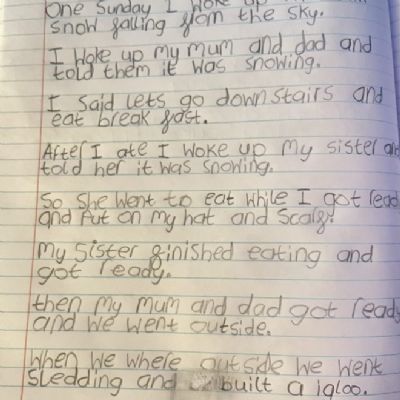 One Sunday I woke up
snow falling from the sky.
I woke up my mum and dad and
told them it was snowing.
I said lets go downstairs and
eat break fast.
After I ate I woke up my sister and
told her it was snowing.
So she went to eat while I got read
and Put on my hat and scarf.
My sister finished eating and
got ready.
then my mum and dad got ready
and we went outside.
When we where outside we went
sledding and built a igloo.